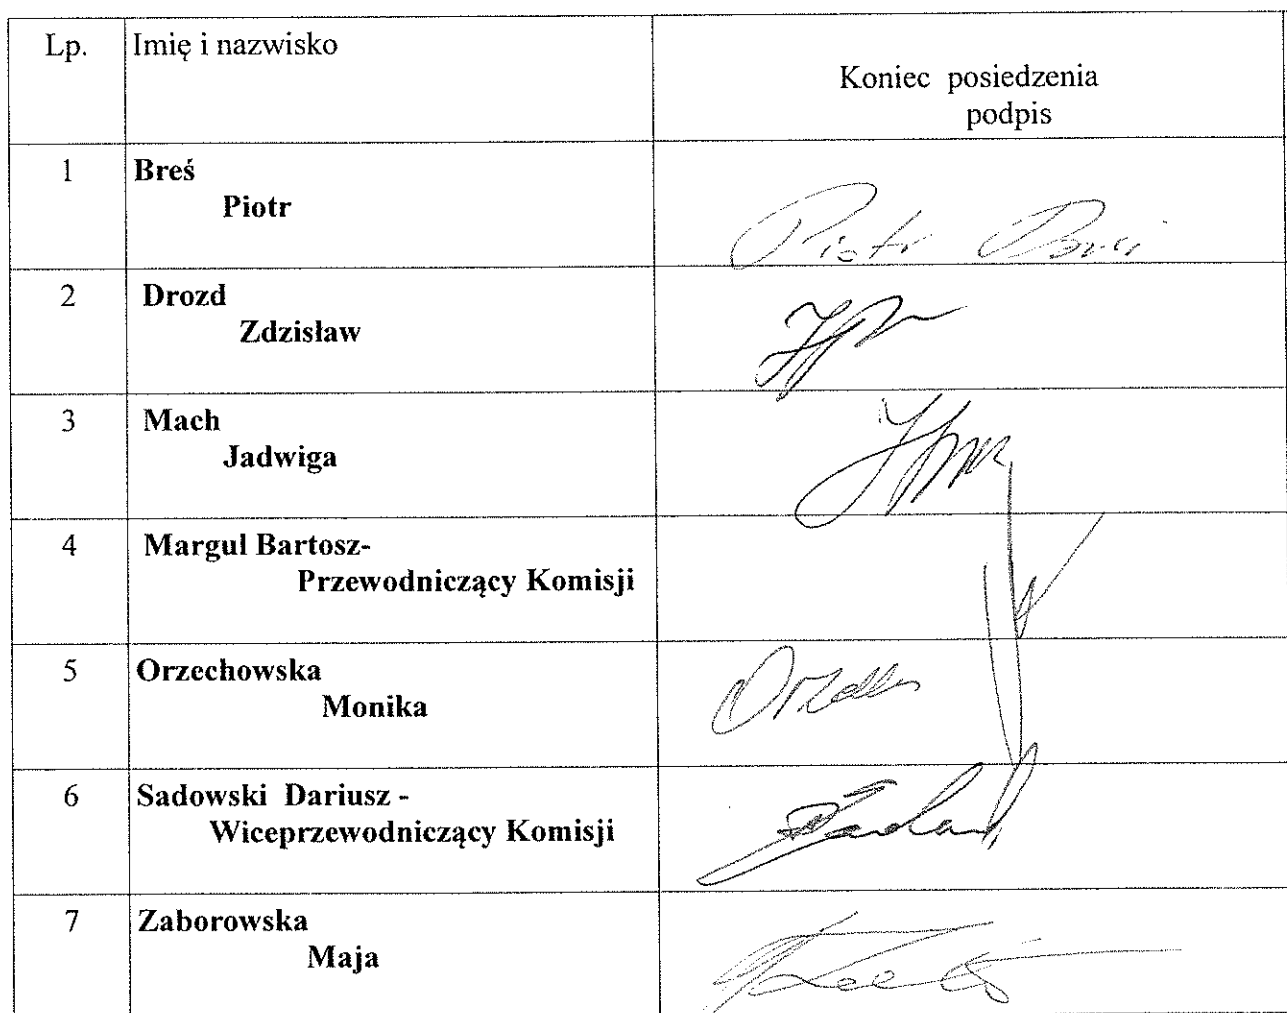 Lp.
Imię i nazwisko
Koniec posiedzenia
podpis
1
Breś
Piotr
Piotr Breś
2
Drozd
Zdzisław
3
Mach
Jadwiga
4
Margul Bartosz-
Przewodniczący Komisji
5
Orzechowska
Monika
6
Sadowski Dariusz -
Wiceprzewodniczący Komisji
7
Zaborowska
Maja